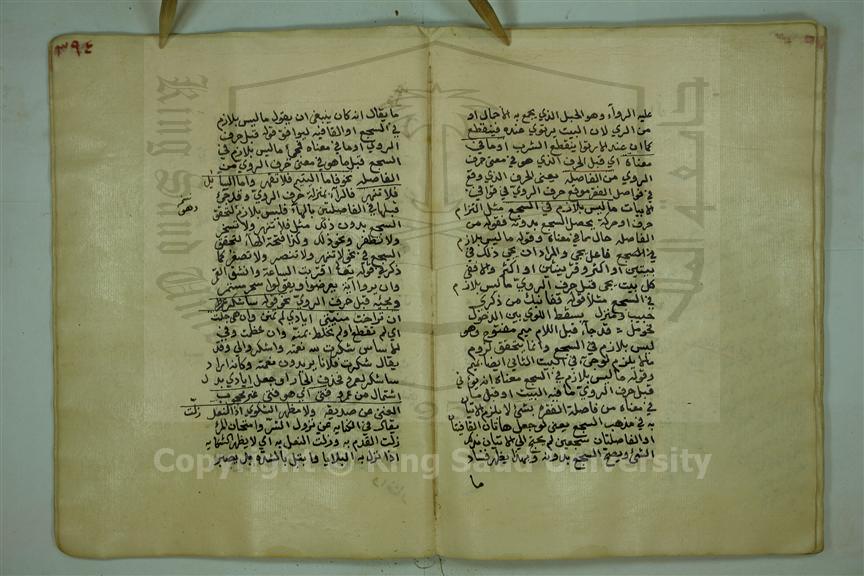 عليه الرواء وهو الحبل الذي يجمع به الاحمال او
من الري لان البيت يرتوي عنده فينقطع
كما ان عند الارتواء ينقطع الشرب او ما في
معناه اي قبل الحرف الذي هو في معنى حرف
الروي من الفاصلة يعني الحرف الذي وقع
في فواصل الفقر موقع حرف الروي في قوافي
الابيات ما ليس بلازم في السجع مثل التزام
حرف او حركة يحصل السجع بدونه فقوله من
الفاصلة حال مما في معناه وقوله ما ليس بلازم
في السجع فاعل يجي والمراد ان يجي ذلك في
بيتين او اكثر وقرينتين او اكثر والا ففي
كل بيت يجي قبل حرف الروي ما ليس بلازم
في السجع مثلا قوله قفا نبك من ذكرى
حبيب ومنزل بسقط اللوى بين الدخول
فحومل قد جاء قبل اللام ميم مفتوح وهو
ليس بلازم في السجع وانما يتحقق لزوم
ما لا يلزم لو جي في البيت الثاني ايضا بميم
وقوله ما ليس بلازم في السجع معناه انه يؤتى في
قبل حرف الروي من قافية البيت او قبل ما
في معناه من فاصلة الفقرة بشي لا يلزم الاتيان
به في مذهب السجع يعني لو جعل هاتان القافيتان
او الفاصلتان سجعتين لم يحتج الى الاتيان بذلك
الشي ويصح السجع بدونه وبهذا يظهر فساد
ما
٣٩٤
ما يقال انه كان ينبغي ان يقول ما ليس بلازم
في السجع او القافية ليوافق قوله قبل حرف
الروي او ما في معناه فمجي ما ليس بلازم في
السجع قبل ما هو في معنى حرف الروي من
الفاصلة نحو فاما اليتيم فلا تقهر واما السائل
فلا تنهر فالراء بمنزلة حرف الروي وقد جي
قبلها في الفاصلتين بالهاء فليس بلازم لتحقق
السجع بدون ذلك مثل فلا تنهر ولا تسخر
ولا تظفر ونحو ذلك وكذا فتحة الهاء لتحقق
السجع في نحو لا تنهر ولا تنصر ولا تصغر كما
ذكر في قوله تعالى اقتربت الساعة وانشق القمر
وان يروا آية يعرضوا ويقولوا سحر مستمر
ومجيئه قبل حرف الروي نحو قوله ساشكر عمرا
ان تراخت منيتي ايادي لم تمنن وان هي جلت
اي لم تقطع او لم تخلط بمنة وان عظمت وفي
الاساس شكرت لله نعمته واشكروا لي وقد
يقال شكرت فلانا يريدون نعمته وكانه اراد
ساشكر لعمرو فحذف الجار او جعل ايادي بدل
اشتمال من عمرو فتى اي هو فتى غير محجوب
الغنى من صديقه ولا مظهر الشكوى اذا النعل زلت
يقال في الكناية عن نزول الشر وامتحان المرء
زلت القدم به وزلت النعل به اي لا يظهر الشكاية
اذا نزل به البلايا وابتلي بالشدة بل يصبر
King Saud University
جامعة الملك سعود
Copyright © King Saud University